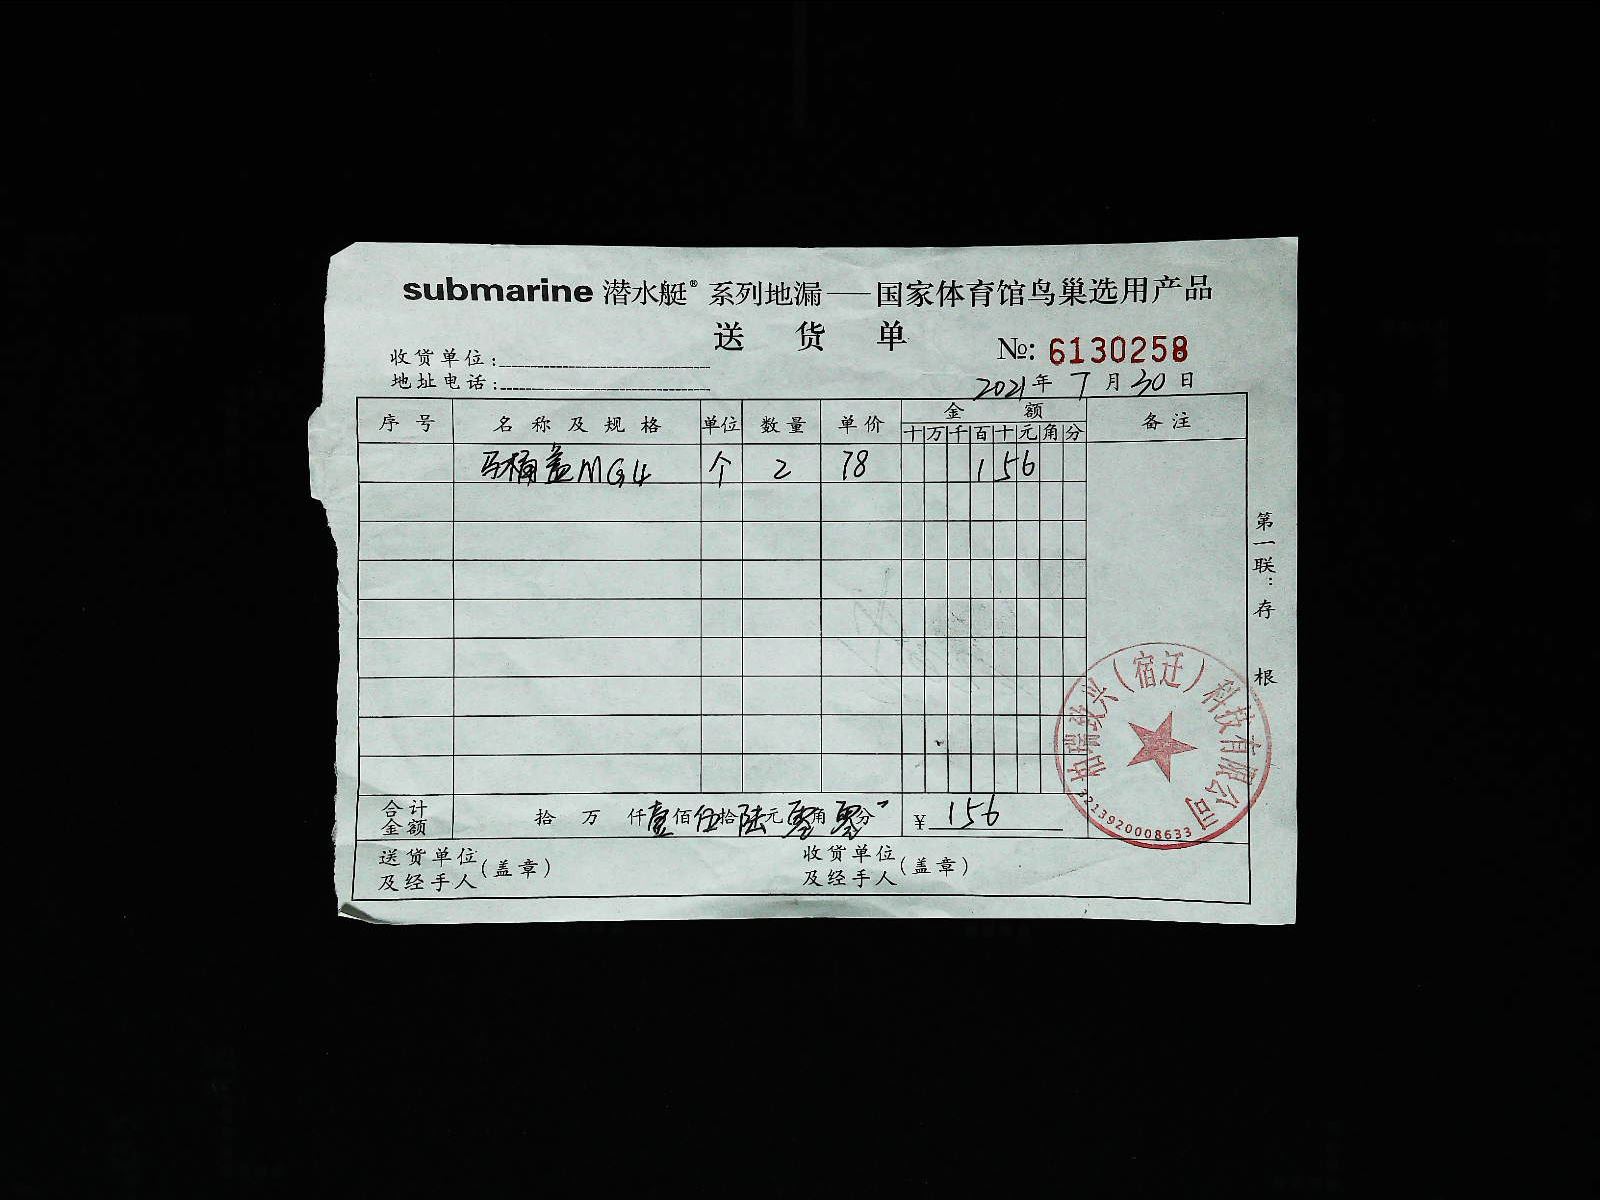 submarine 潜水艇® 系列地漏——国家体育馆鸟巢选用产品
送 货 单
№: 6130258
收货单位:
地址电话:
2021年 7月30日
序号 名称及规格 单位 数量 单价 金额 备注
十 万 千 百 十 元 角 分
马桶盖MG4 个 2 78 156
合计金额 拾 万 仟壹佰伍拾陆元零角零分 ¥ 156
送货单位及经手人(盖章) 收货单位及经手人(盖章)
第一联:存根
柏瑞致兴(宿迁)科技有限公司
3213920008633